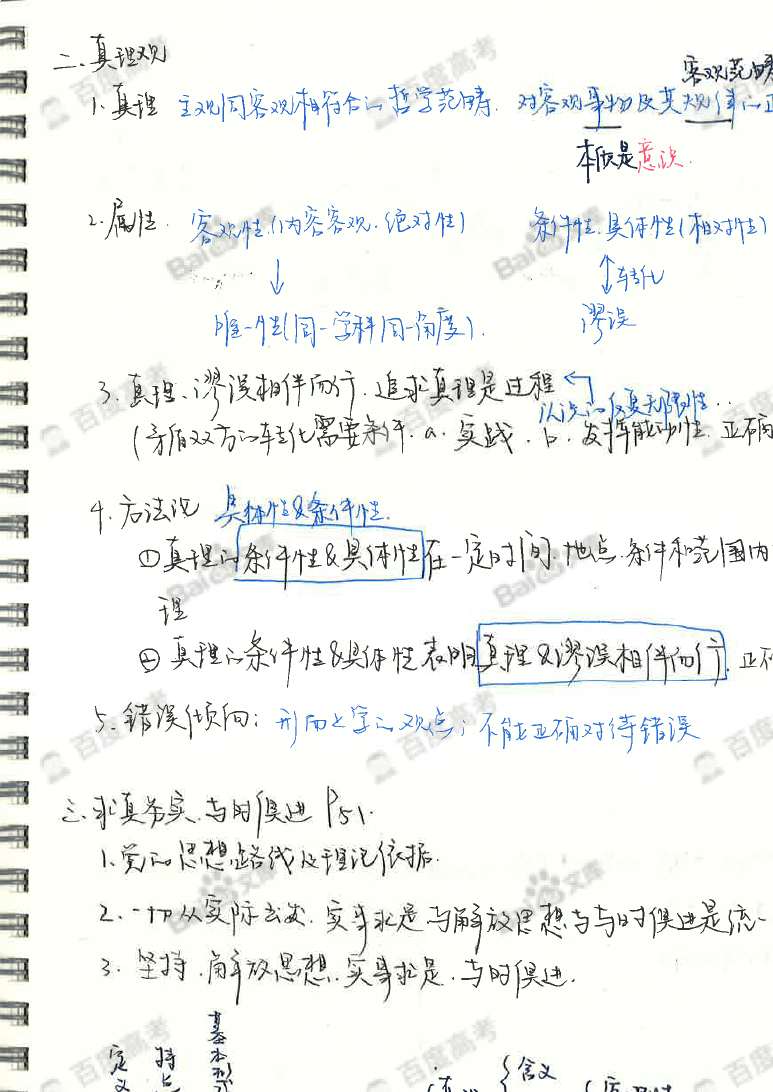 二、真理观
客观范畴
1、真理 主观同客观相符合的哲学范畴. 对客观事物及其规律的正
本质是意识.
2、属性. 客观性(内容客观.绝对性) 条件性.具体性(相对性)
转化
唯一性(同一学科同一角度). 谬误
3、真理、谬误相伴而行.追求真理是过程
认识的反复无限性..
(矛盾双方的转化需要条件. a.实践. b.发挥能动性.正确
4、方法论 具体性&条件性.
①真理的条件性&具体性在一定时间.地点.条件和范围内
理
②真理的条件性&具体性表明真理&谬误相伴而行.正确
5、错误倾向: 形而上学的观点; 不能正确对待错误
三、求真务实、与时俱进 P51.
1、党的思想路线及理论依据.
2、一切从实际出发.实事求是与解放思想与与时俱进是统一
3、坚持.解放思想.实事求是.与时俱进.
定义 特点 基本形式 含义
百度高考
Baidu文库